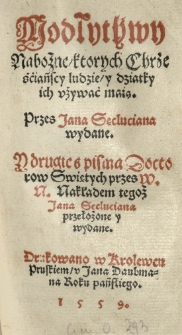 Modlythwy
Nabożne/ktorych Chrze
śćiańscy ludzie/y dziatky
ich vżywać maią.
Przes Jana Secluciana
wydane.
Y drugie s pisma Docto
row Swiętych przes W.
N. Nakładem tegoż
Jana Secluciana
przełożone y
wydane.
Drukowano w Krolewcu
Pruskiem/v Jana Daubma-
na Roku pańskiego.
1 5 5 9.